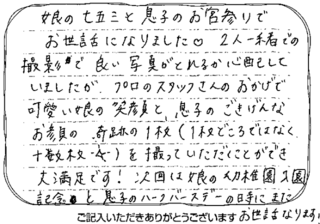 娘の七五三と息子のお宮参りで
お世話になりました♡ 2人一緒での
撮影で良い写真がとれるか心配して
いましたが、プロのスタッフさんのおかげで
可愛い娘の笑顔と、息子のごきげんな
お顔の 奇跡の1枚(1枚どころではなく
十数枚・・)を撮っていただくことができ
大満足です! 次回は娘の幼稚園入園
記念と息子のハーフバースデーの日時にまた
お世話なります。
ご記入いただきありがとうございます